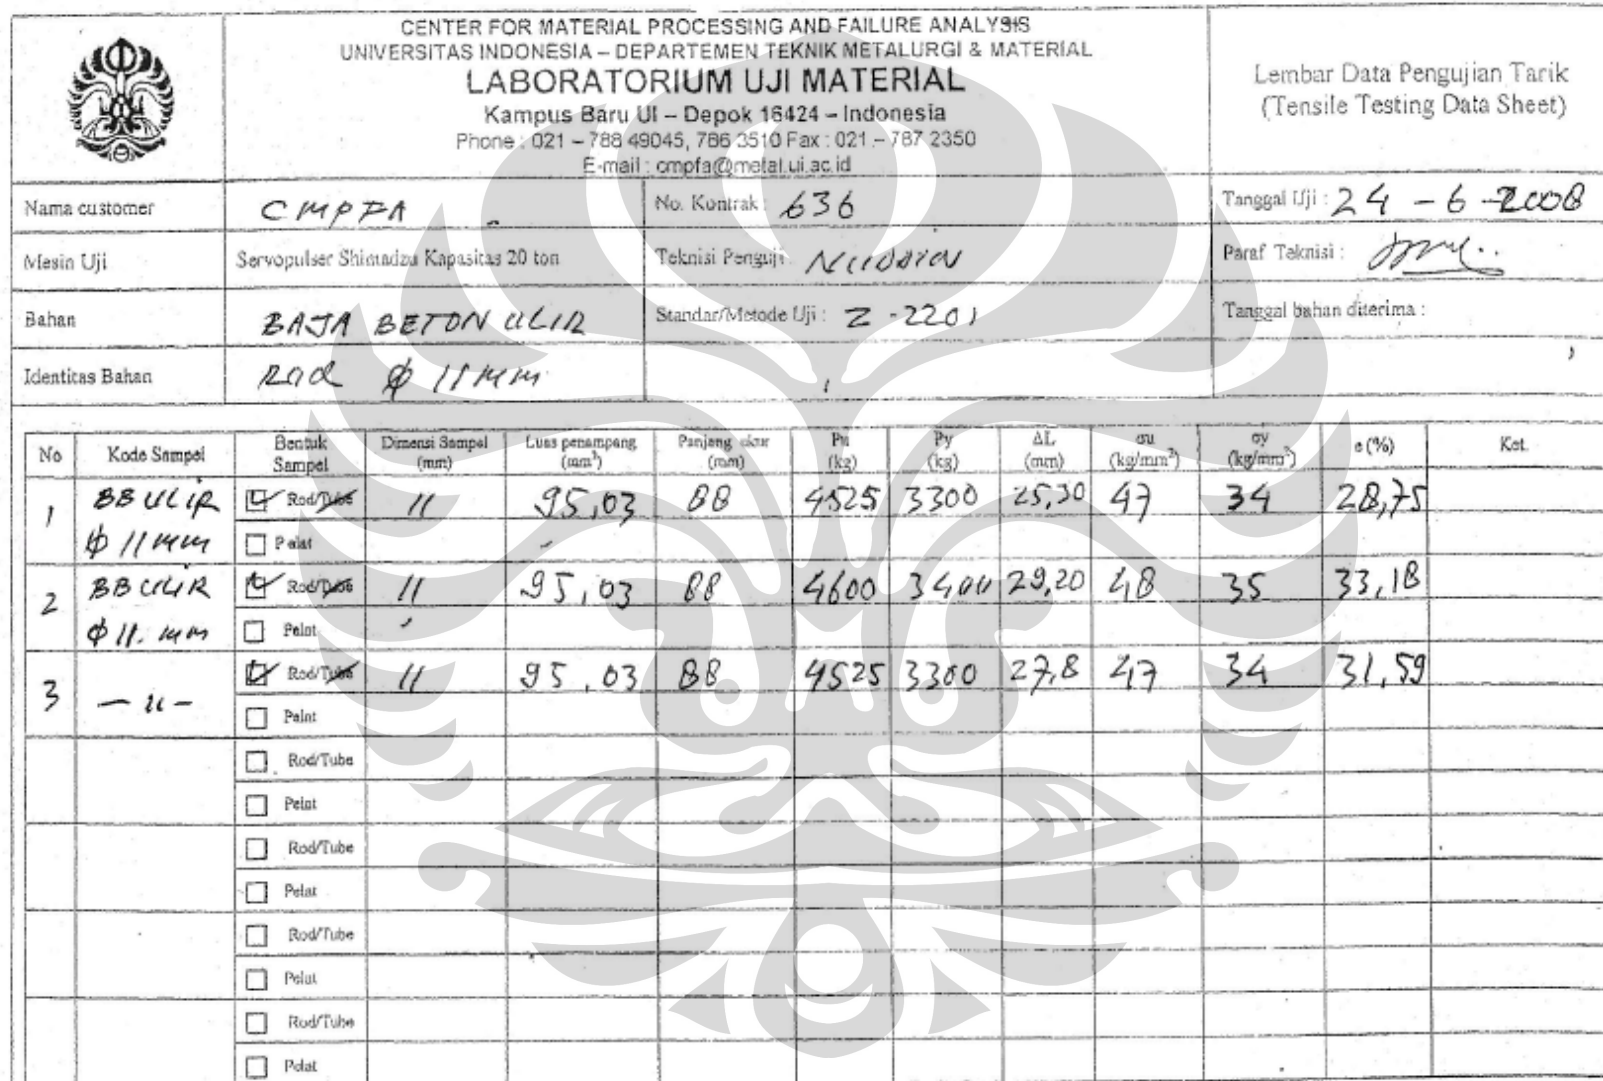 CENTER FOR MATERIAL PROCESSING AND FAILURE ANALYSIS
UNIVERSITAS INDONESIA – DEPARTEMEN TEKNIK METALURGI & MATERIAL
LABORATORIUM UJI MATERIAL
Kampus Baru UI – Depok 16424 – Indonesia
Phone : 021 – 788 49045, 786 3510 Fax : 021 – 787 2350
E-mail : cmpfa@metal.ui.ac.id
Lembar Data Pengujian Tarik
(Tensile Testing Data Sheet)
Nama customer CMPFA No. Kontrak : 636 Tanggal Uji : 24 - 6 - 2008
Mesin Uji Servopulser Shimadzu Kapasitas 20 ton Teknisi Penguji : Paraf Teknisi :
Bahan BAJA BETON ULIR Standar/Metode Uji : Z - 2201 Tanggal bahan diterima :
Identitas Bahan Rod ϕ 11 mm
No Kode Sampel Bentuk Sampel Dimensi Sampel (mm) Luas penampang (mm²) Panjang ukur (mm) Pu (kg) Py (kg) ΔL (mm) σu (kg/mm²) σy (kg/mm²) e (%) Ket.
1 BB ULIR Rod/Tube 11 95,03 88 4525 3300 25,30 47 34 28,75
ϕ 11 mm Pelat
2 BB ULIR Rod/Tube 11 95,03 88 4600 3400 29,20 48 35 33,18
ϕ 11. mm Pelat
3 — 11 — Rod/Tube 11 95,03 88 4525 3300 27,8 47 34 31,59
Pelat
Rod/Tube
Pelat
Rod/Tube
Pelat
Rod/Tube
Pelat
Rod/Tube
Pelat